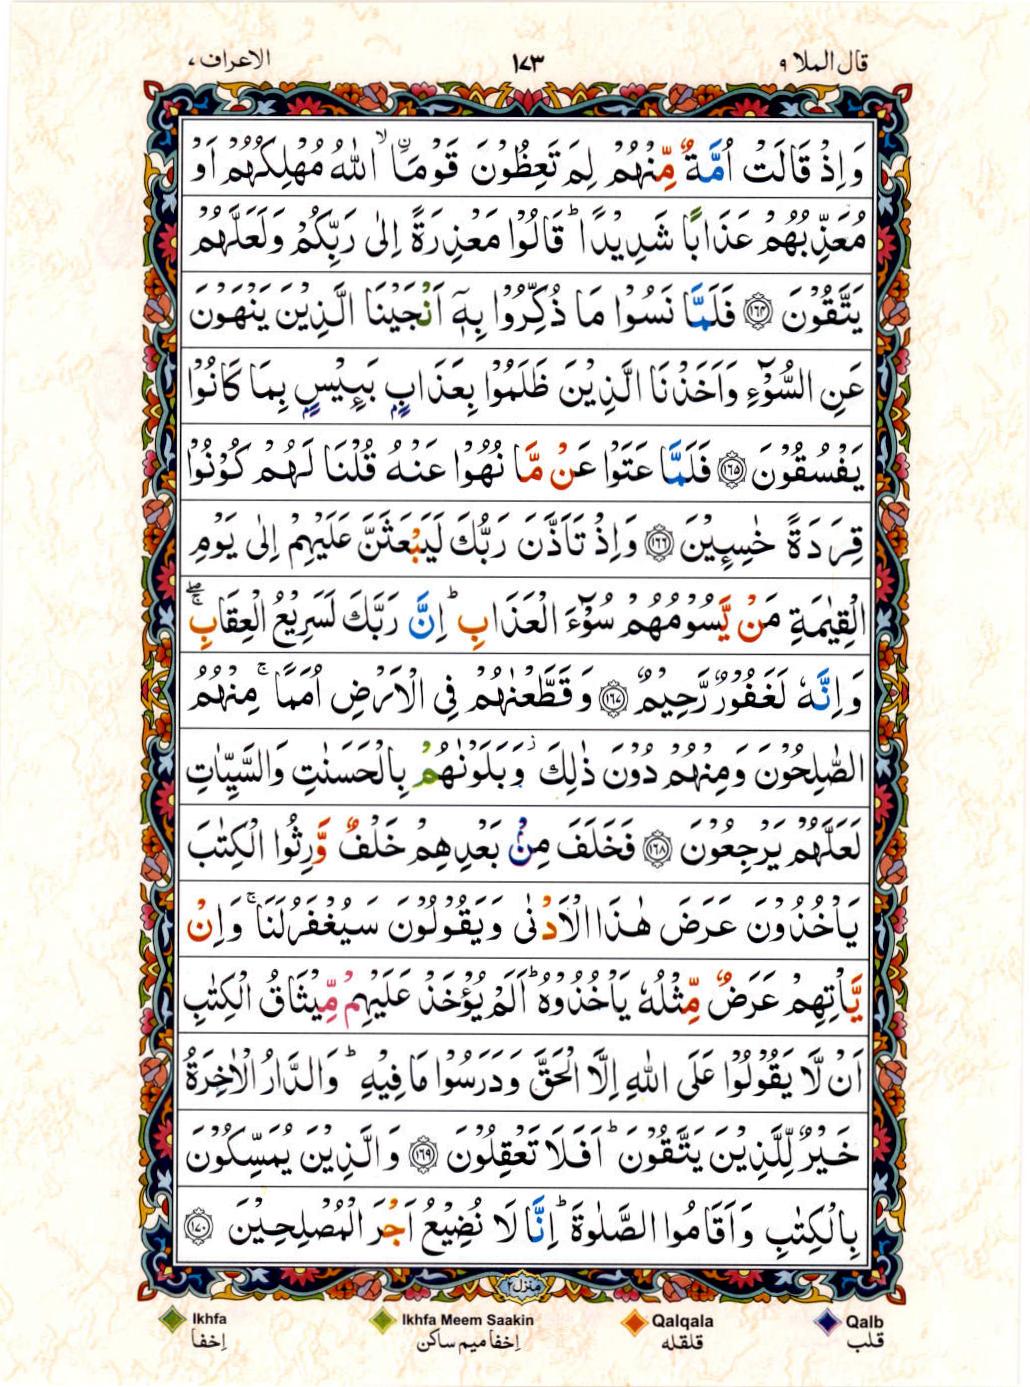 قال الملا ٩ ١٧٣ الاعراف ٧
وَاِذْ قَالَتْ اُمَّةٌ مِّنْهُمْ لِمَ تَعِظُوْنَ قَوْمَاۨ ۙ اللّٰهُ مُهْلِكُهُمْ اَوْ
مُعَذِّبُهُمْ عَذَابًا شَدِيْدًا ؕ قَالُوْا مَعْذِرَةً اِلٰى رَبِّكُمْ وَلَعَلَّهُمْ
يَتَّقُوْنَ ﴿۱۶۴﴾ فَلَمَّا نَسُوْا مَا ذُكِّرُوْا بِهٖۤ اَنْجَيْنَا الَّذِيْنَ يَنْهَوْنَ
عَنِ السُّوْٓءِ وَاَخَذْنَا الَّذِيْنَ ظَلَمُوْا بِعَذَابٍۭ بَـِٕيْسٍۭ بِمَا كَانُوْا
يَفْسُقُوْنَ ﴿۱۶۵﴾ فَلَمَّا عَتَوْا عَنْ مَّا نُهُوْا عَنْهُ قُلْنَا لَهُمْ كُوْنُوْا
قِرَدَةً خٰسِـِٕيْنَ ﴿۱۶۶﴾ وَاِذْ تَاَذَّنَ رَبُّكَ لَيَبْعَثَنَّ عَلَيْهِمْ اِلٰى يَوْمِ
الْقِيٰمَةِ مَنْ يَّسُوْمُهُمْ سُوْٓءَ الْعَذَابِ ؕ اِنَّ رَبَّكَ لَسَرِيْعُ الْعِقَابِ ۖۚ
وَاِنَّهٗ لَغَفُوْرٌ رَّحِيْمٌ ﴿۱۶۷﴾ وَقَطَّعْنٰهُمْ فِى الْاَرْضِ اُمَمًا ۚ مِنْهُمُ
الصّٰلِحُوْنَ وَمِنْهُمْ دُوْنَ ذٰلِكَ ؗ وَبَلَوْنٰهُمْ بِالْحَسَنٰتِ وَالسَّيِّاٰتِ
لَعَلَّهُمْ يَرْجِعُوْنَ ﴿۱۶۸﴾ فَخَلَفَ مِنْۢ بَعْدِهِمْ خَلْفٌ وَّرِثُوا الْكِتٰبَ
يَاْخُذُوْنَ عَرَضَ هٰذَا الْاَدْنٰى وَيَقُوْلُوْنَ سَيُغْفَرُ لَنَا ۚ وَاِنْ
يَّاْتِهِمْ عَرَضٌ مِّثْلُهٗ يَاْخُذُوْهُ ؕ اَلَمْ يُؤْخَذْ عَلَيْهِمْ مِّيْثَاقُ الْكِتٰبِ
اَنْ لَّا يَقُوْلُوْا عَلَى اللّٰهِ اِلَّا الْحَقَّ وَدَرَسُوْا مَا فِيْهِ ؕ وَالدَّارُ الْاٰخِرَةُ
خَيْرٌ لِّلَّذِيْنَ يَتَّقُوْنَ ؕ اَفَلَا تَعْقِلُوْنَ ﴿۱۶۹﴾ وَالَّذِيْنَ يُمَسِّكُوْنَ
بِالْكِتٰبِ وَاَقَامُوا الصَّلٰوةَ ؕ اِنَّا لَا نُضِيْعُ اَجْرَ الْمُصْلِحِيْنَ ﴿۱۷۰﴾
منزل ٢
Ikhfa Ikhfa Meem Saakin Qalqala Qalb
إخفا إخفا ميم ساكن قلقله قلب